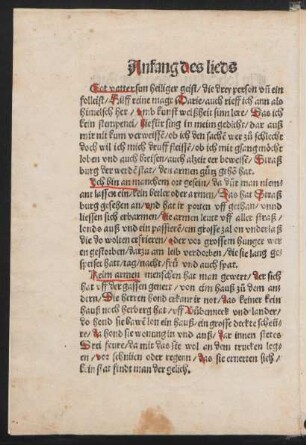 Anfang des lieds
Got vatter sun heiliger geist/ die drey person vñ ein
follest/ hilff reine magt Marie/ auch rieff ich ann alo
himelsch her/ vnd kunst weißheit sinn lere/ Das ich
kein stempenei/ hiefür sing in mein gedicht/ dar auß
mit nit kum verweissē/ ob ich den sachē wer zu schlecht
doch wil ich mich druff fleissē/ ob ich mit gsang möcht
loben vnd auch breisen/ auch alzeit er beweise/ Straß
burg der werdē stat/ den armen gütz gethō hat.
Ich bin an manchem ort gesein/ da düt man nien,
ant lassen ein/ kein teiler oder armen/ Das hat Straß
burg gesehen an/ vnd hat ir porten vff gethan/ vnnd
liessen sich erbarmen/ die armen leut vff aller straß/
londo auß vnd ein passiere/ ein grosse zal on vnderlaß
die do wolten erfrieren/ oder vor grossem hunger wer
en gestorben/ dar zu am leib verdorben/ die sie lang ge
speiset hatt/ tag/ nacht/ frü vnd auch spat.
Keim armen menschen hat man gewert/ der sich
hat vff der gassen genert/ von eim hauß zu dem an
dern/ Die herren hond erkant ir not/ das keiner kein
hauß noch herberg hat/ vff
do hond sie bawē lon ein hauß/ ein grosse deckte scheü
re/ da hond sie wonung in vnd auß/ dar innen stetes
Drei feure/ da mit das sie wol an dem trucken leg
en/ vor schnien oder regen/ das sie ernerten sich/
kein stat findt man der gelich.